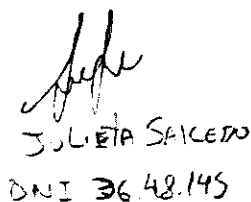 JULIETA SALCEDO
DNI 36.48.145